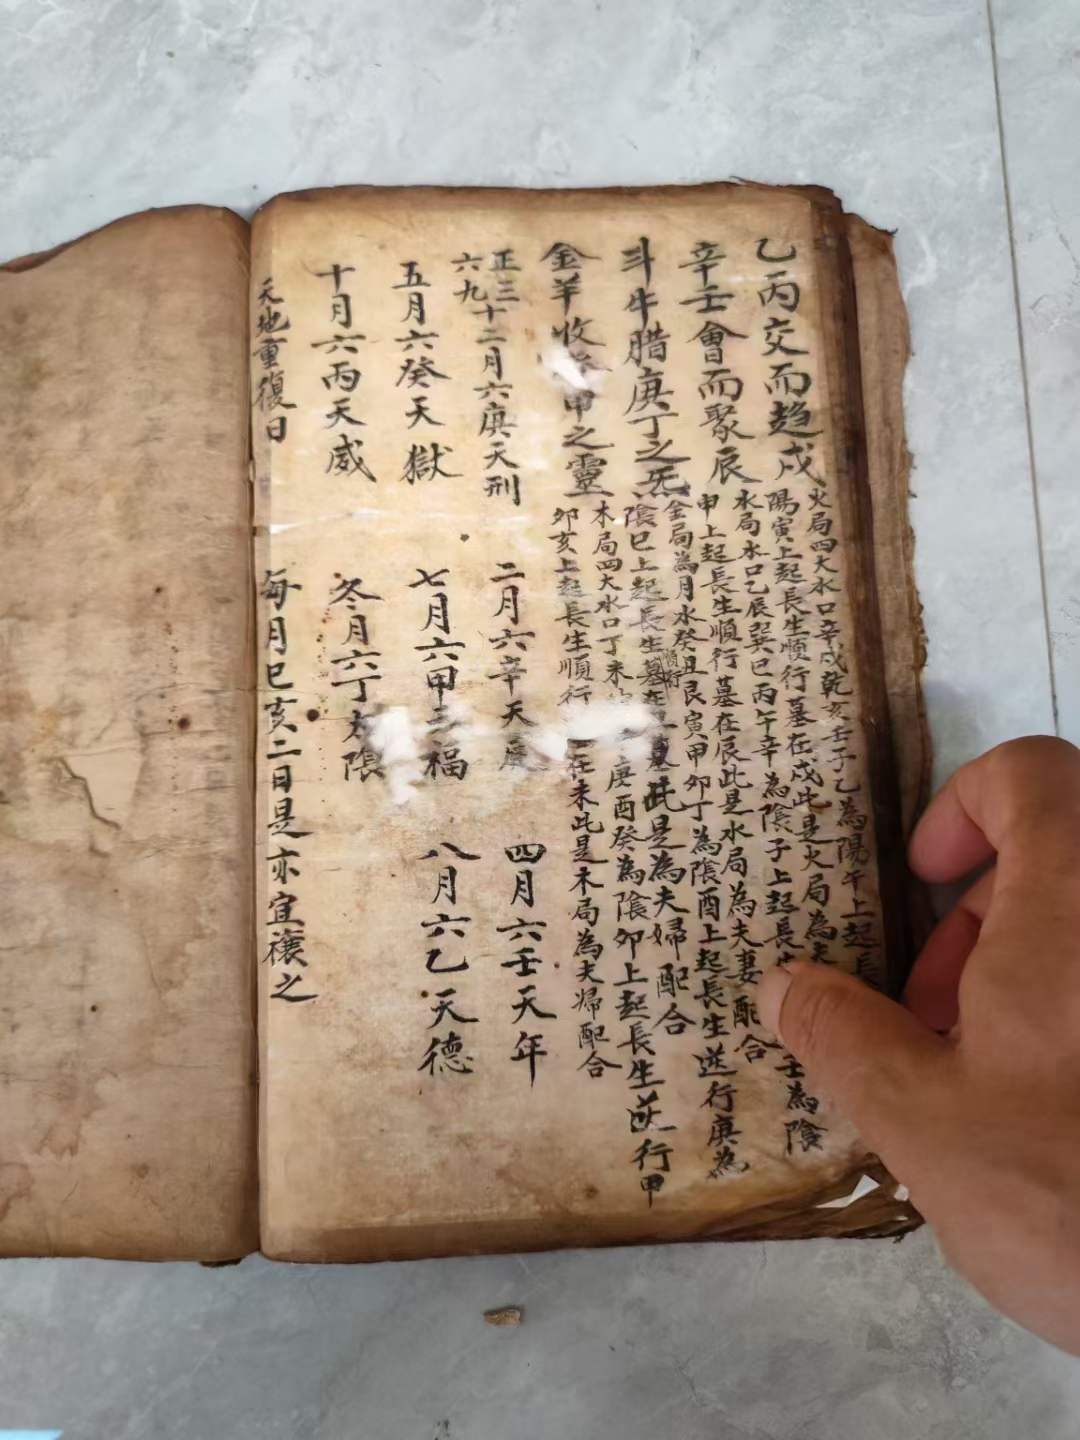 乙丙交而趋戍
火局四大水口辛戍乾亥壬子乙為陽午上起長
陽寅上起長生順行墓在戍此是火局為夫
辛壬會而聚辰
水局水口乙辰巽巳丙午辛為陰子上起長生 壬為陰
申上起長生順行墓在辰此是水局為夫妻配合
斗牛腊庚丁之炁
金局為月水癸丑艮寅甲卯丁為陰酉上起長生逆行庚為
陰巳上起長生順行墓在 墓此是為夫婦配合
金羊收 甲之靈
木局四大水口丁未 庚酉癸為陰卯上起長生逆行甲
卯亥上起長生順行 在未此是木局為夫婦配合
正三
六九十二月六庚天刑 二月六辛天庭 四月六壬天年
五月六癸天獄 七月六甲 福 八月六乙天德
十月六丙天威 冬月六丁太陰
天地重復日 每月巳亥二日是亦宜禳之